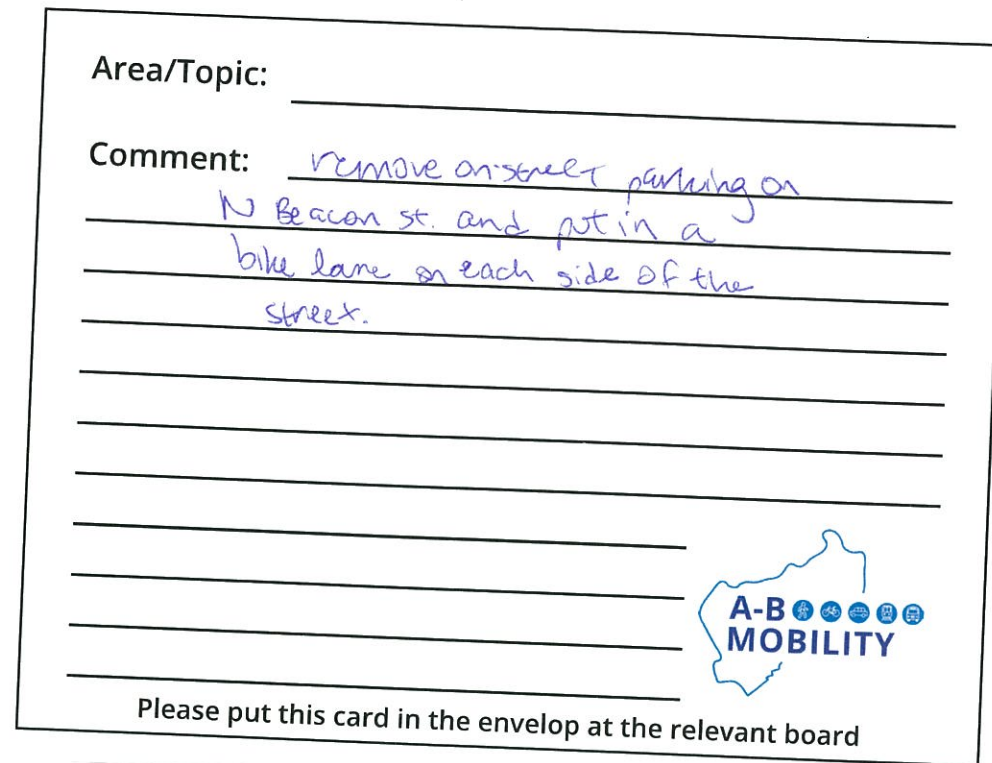 Area/Topic:
Comment: remove on-street parking on
N Beacon st. and put in a
bike lane on each side of the
street.
A-B
MOBILITY
Please put this card in the envelop at the relevant board